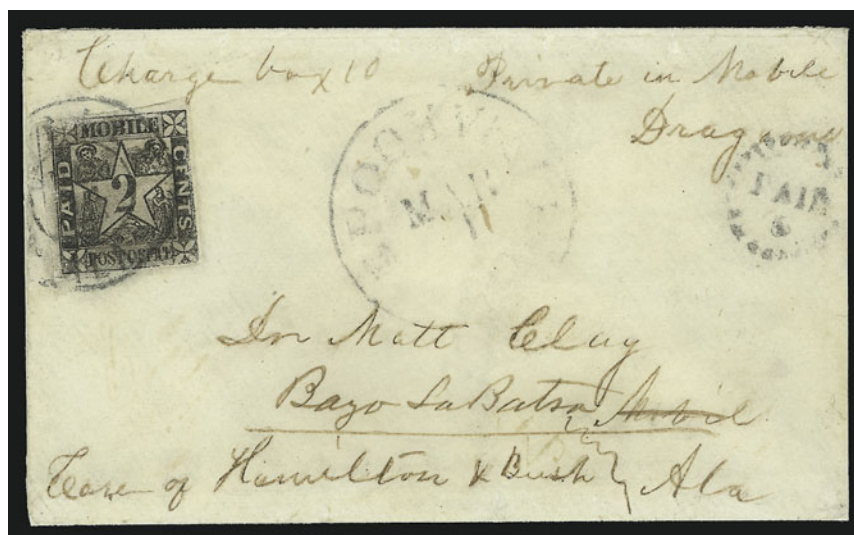 Charge box 10
Private in Mobile
Dragoons
MOBILE
PAID
2
CENTS
POST OFFICE
MAR
11
PAID
5
Dr Matt Clay
Bayo La Batra Mobile
Care of Hamilton & Bush
Ala